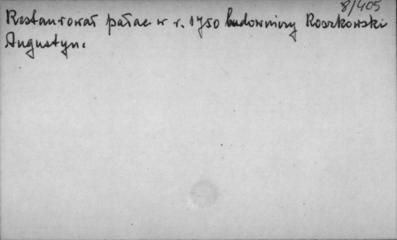 8/405
Restaurował pałac w r. 1750 budowniczy Roszkowski
Augustyn.